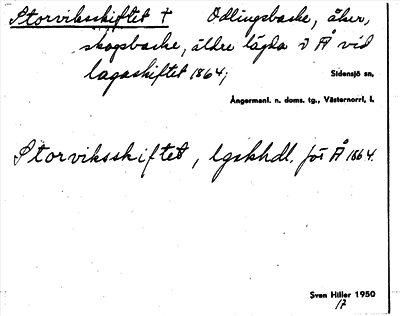 Storviksskiftet † Odlingsbacke, åker,
skogsbacke, äldre lägda i Å vid
lagaskiftet 1864;
Sidensjö sn,
Ångermanl. n. doms. tg., Västernorrl. l.
Storviksskiftet, lgskhdl. för Å 1864.
Sven Hiller 1950
17